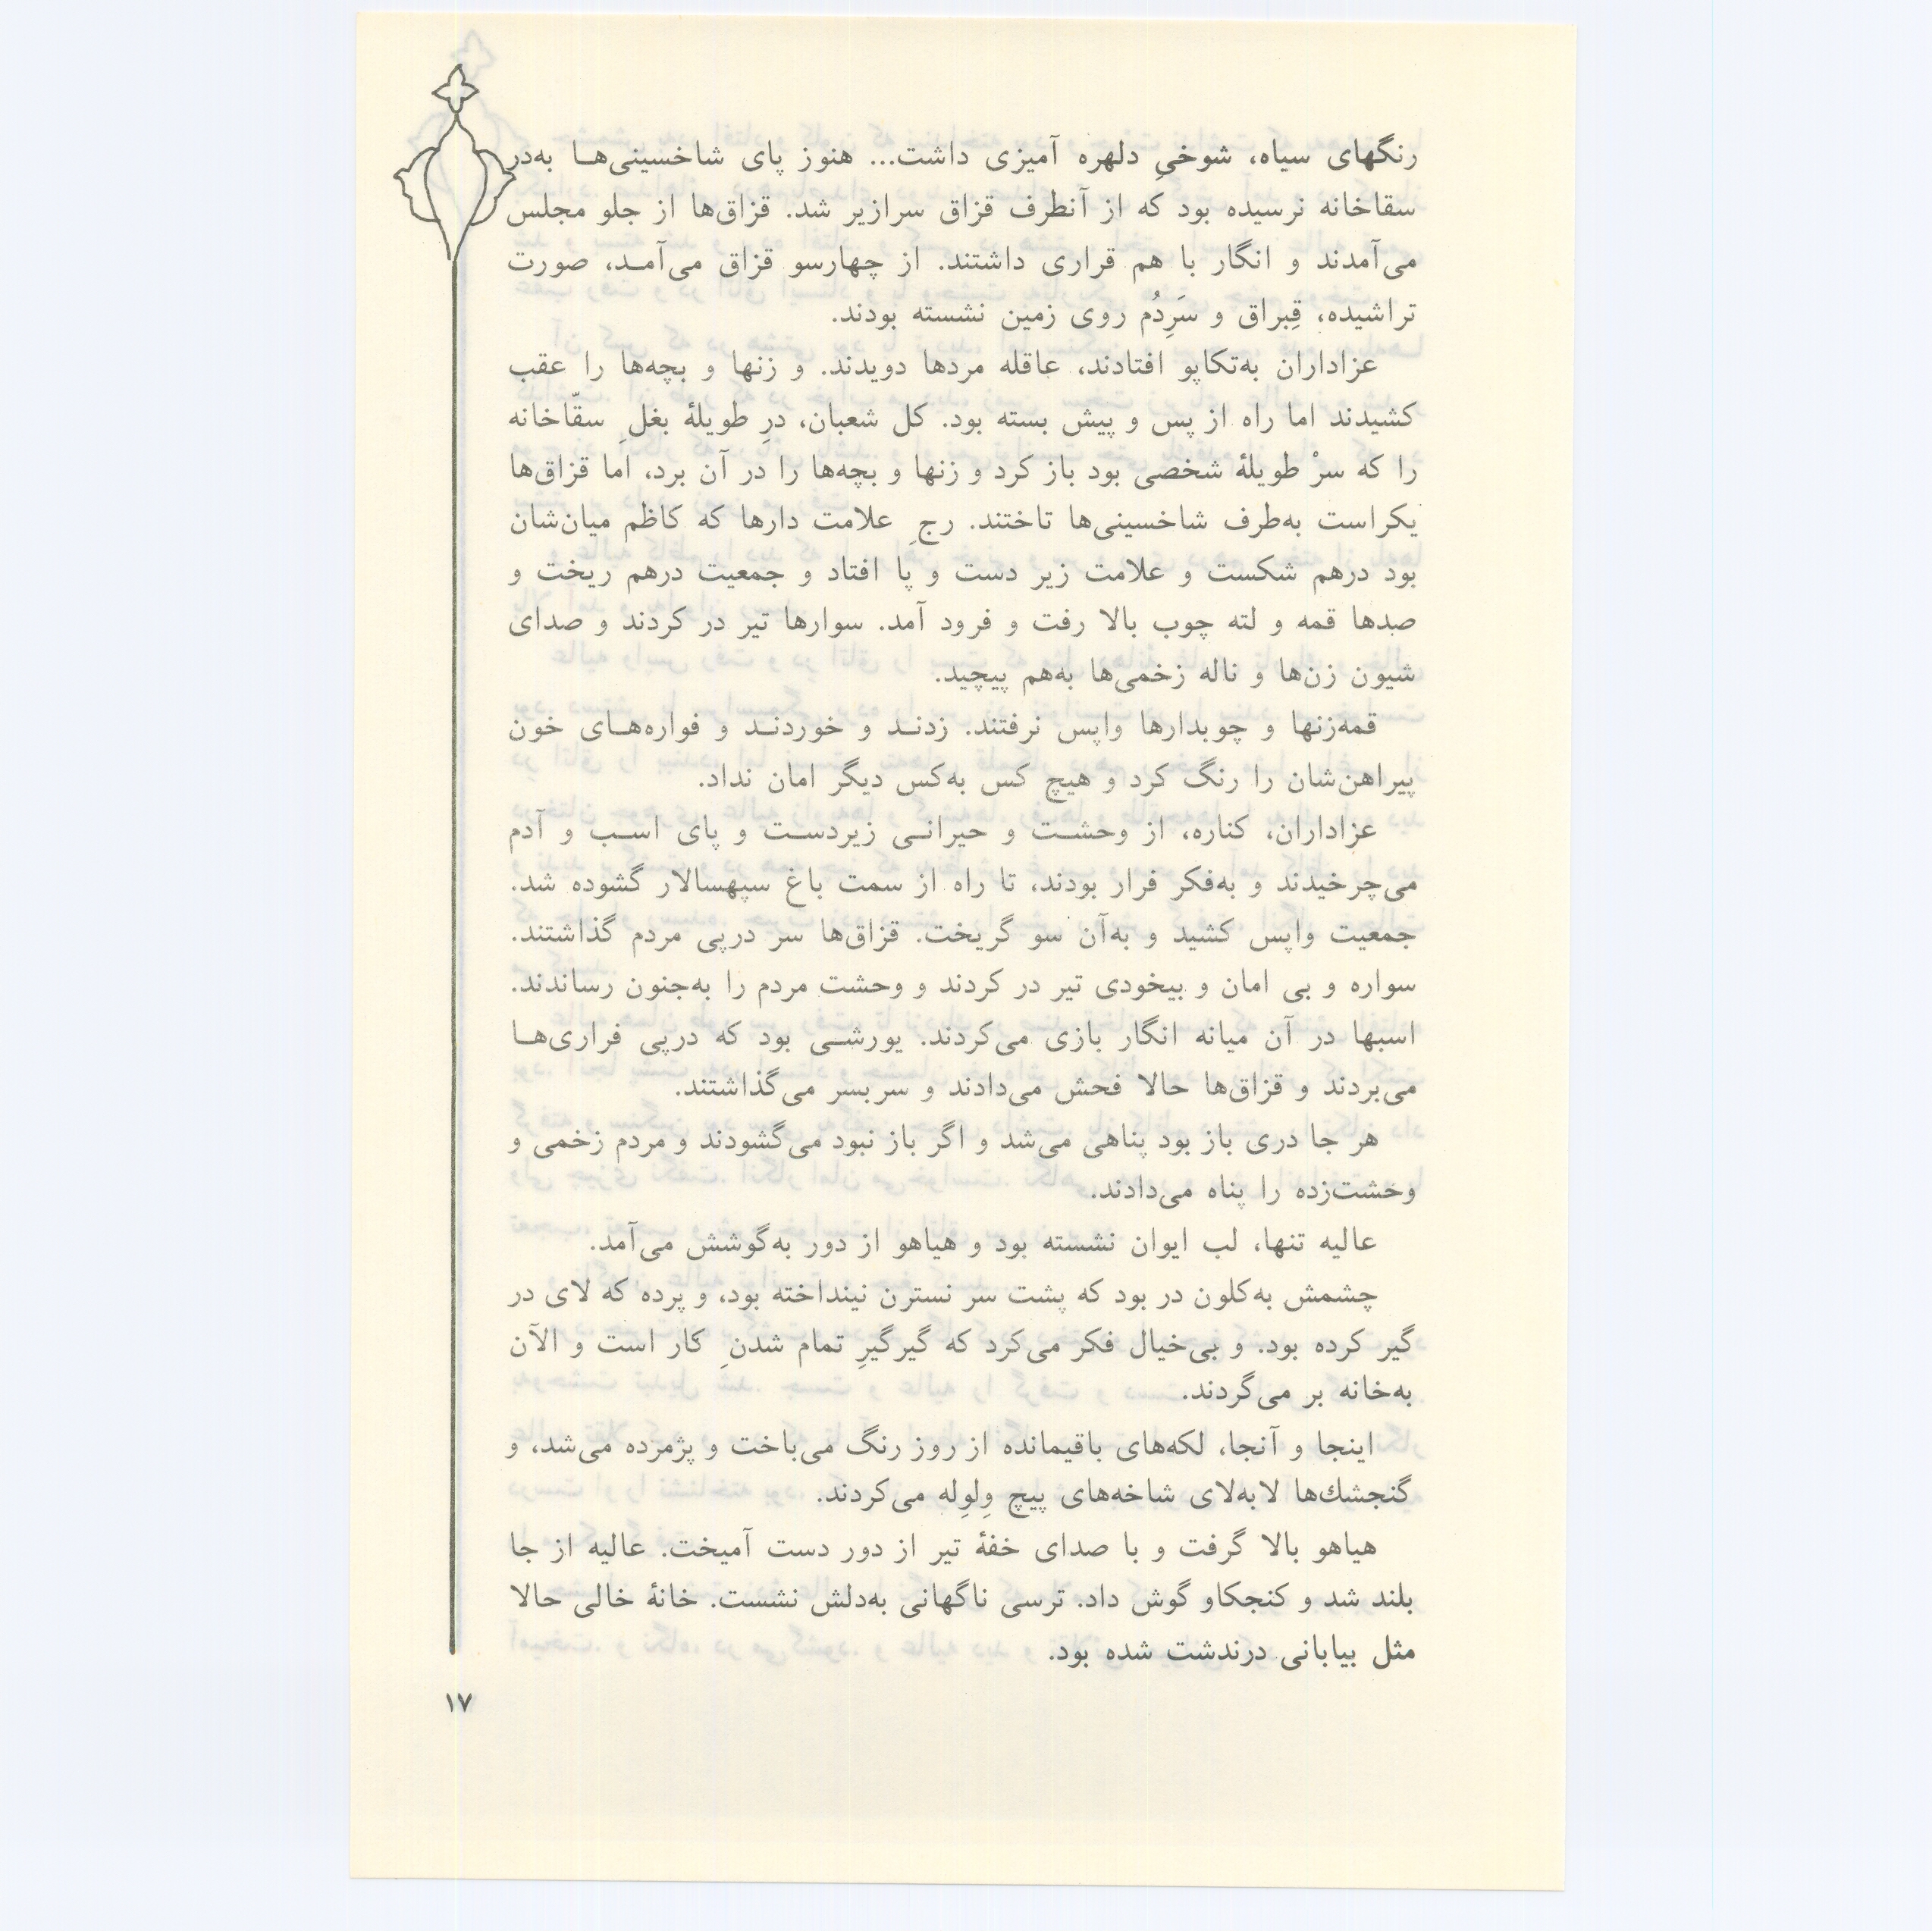 رنگهای سیاه، شوخیِ دلهره آمیزی داشت... هنوز پای شاخسینی‌ها به‌در
سقاخانه نرسیده بود که از آنطرف قزاق سرازیر شد. قزاق‌ها از جلو مجلس
می‌آمدند و انگار با هم قراری داشتند. از چهارسو قزاق می‌آمد، صورت
تراشیده، قِبراق و سَرِدُم روی زمین نشسته بودند.
عزاداران به‌تکاپو افتادند، عاقله مردها دویدند. و زنها و بچه‌ها را عقب
کشیدند اما راه از پس و پیش بسته بود. کل شعبان، درِ طویلهٔ بغلِ سقّاخانه
را که سرْ طویلهٔ شخصی بود باز کرد و زنها و بچه‌ها را در آن برد، اما قزاق‌ها
یکراست به‌طرف شاخسینی‌ها تاختند. رجِ علامت دارها که کاظم میان‌شان
بود درهم شکست و علامت زیر دست و پا افتاد و جمعیت درهم ریخت و
صدها قمه و لته چوب بالا رفت و فرود آمد. سوارها تیر در کردند و صدای
شیون زن‌ها و ناله زخمی‌ها به‌هم پیچید.
قمه‌زنها و چوبدارها واپس نرفتند. زدند و خوردند و فواره‌های خون
پیراهن‌شان را رنگ کرد و هیچ کس به‌کس دیگر امان نداد.
عزاداران، کناره، از وحشت و حیرانی زیردست و پای اسب و آدم
می‌چرخیدند و به‌فکر فرار بودند، تا راه از سمت باغ سپهسالار گشوده شد.
جمعیت واپس کشید و به‌آن سو گریخت. قزاق‌ها سر درپی مردم گذاشتند.
سواره و بی امان و بیخودی تیر در کردند و وحشت مردم را به‌جنون رساندند.
اسبها در آن میانه انگار بازی می‌کردند. یورشی بود که درپی فراری‌ها
می‌بردند و قزاق‌ها حالا فحش می‌دادند و سربسر می‌گذاشتند.
هر جا دری باز بود پناهی می‌شد و اگر باز نبود می‌گشودند و مردم زخمی و
وحشت‌زده را پناه می‌دادند.
عالیه تنها، لب ایوان نشسته بود و هیاهو از دور به‌گوشش می‌آمد.
چشمش به‌کلون در بود که پشت سر نسترن نینداخته بود، و پرده که لای در
گیر کرده بود. و بی‌خیال فکر می‌کرد که گیرگیرِ تمام شدنِ کار است و الآن
به‌خانه بر می‌گردند.
اینجا و آنجا، لکه‌های باقیمانده از روز رنگ می‌باخت و پژمرده می‌شد، و
گنجشك‌ها لابه‌لای شاخه‌های پیچ وِلوِله می‌کردند.
هیاهو بالا گرفت و با صدای خفهٔ تیر از دور دست آمیخت. عالیه از جا
بلند شد و کنجکاو گوش داد. ترسی ناگهانی به‌دلش نشست. خانهٔ خالی حالا
مثل بیابانی درندشت شده بود.
۱۷